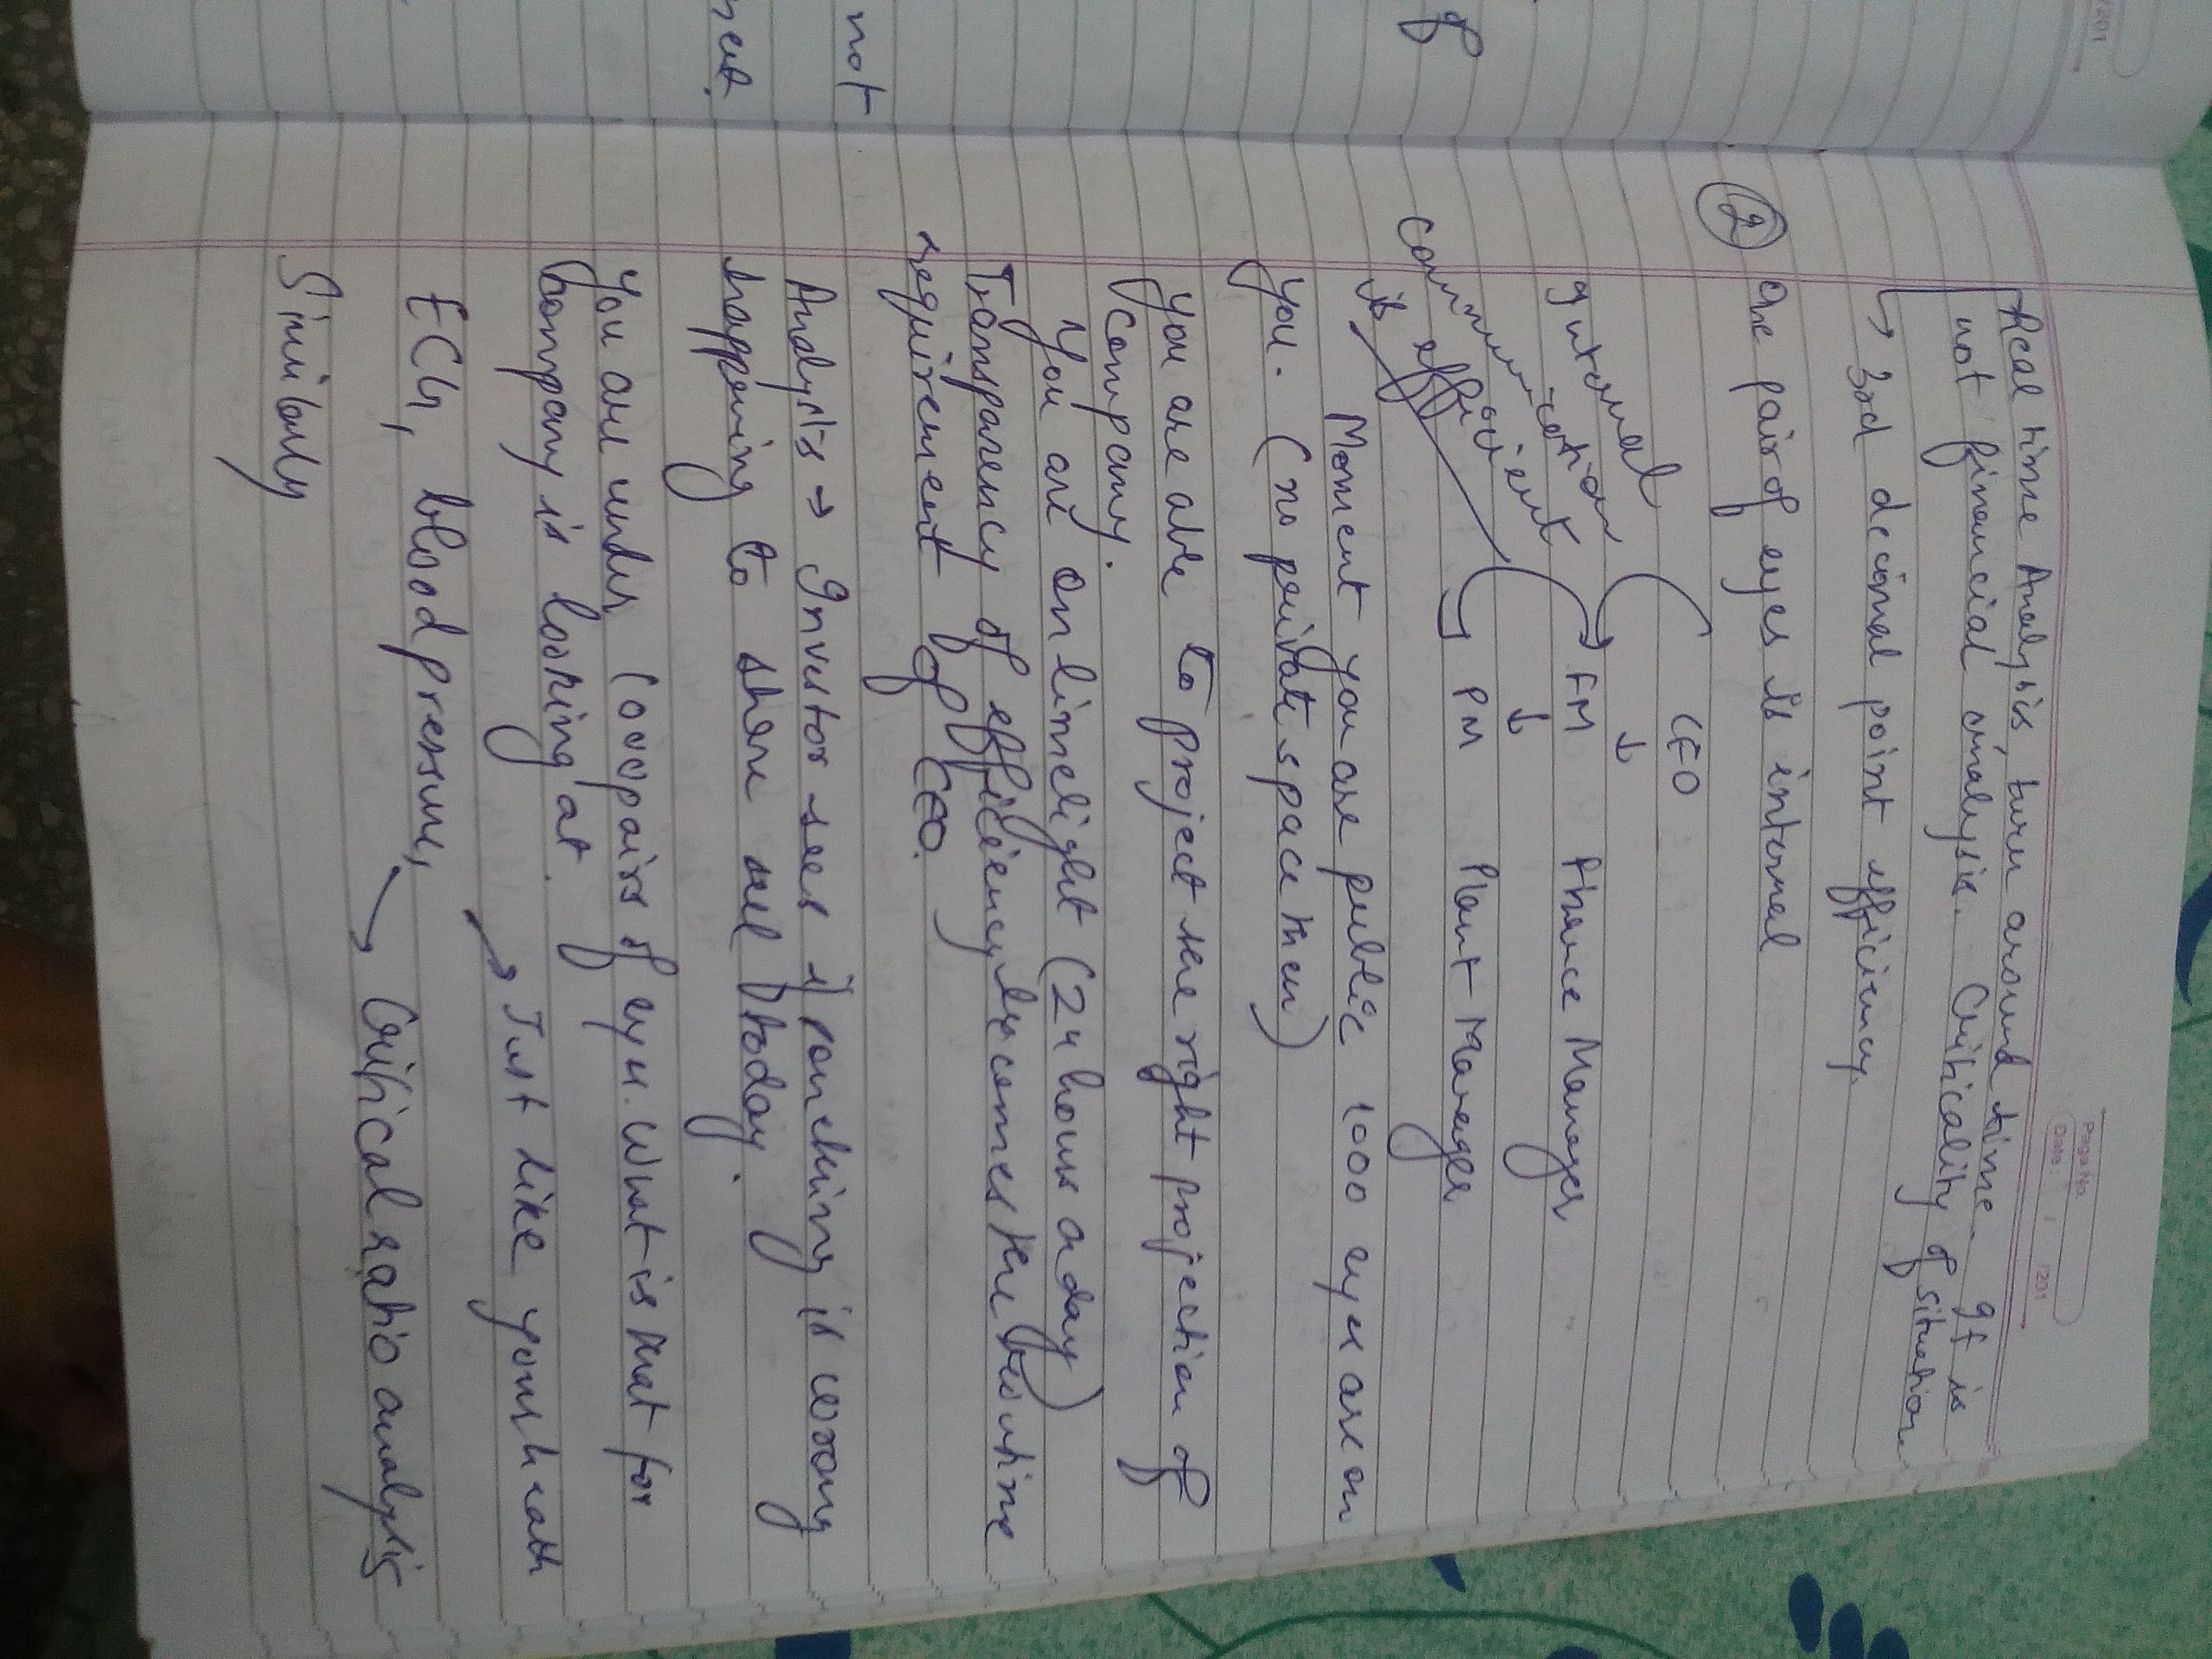 /201
Page No.
Date : / /201
Real time Analysis, turn around time. If is
not financial analysis. Criticality of situation
3rd decimal point efficiency.
2 One pair of eyes is internal
CEO
Internal
communication
is efficient
FM Finance Manager
PM Plant Manager
Moment you are public 1000 eyes are on
you. (no private space then)
you are able to project the right projection of
company.
You are on limelight (24 hours a day)
Transparency of efficiency becomes the routine
requirement of CEO.
Analysts → Investor sees if something is wrong
happening to share sell today.
You are under 1000 pairs of eyes. What is that for
company is looking at.
Just like your heath
ECG, blood pressure,
Critical ratio analysis
Similarly
of
not